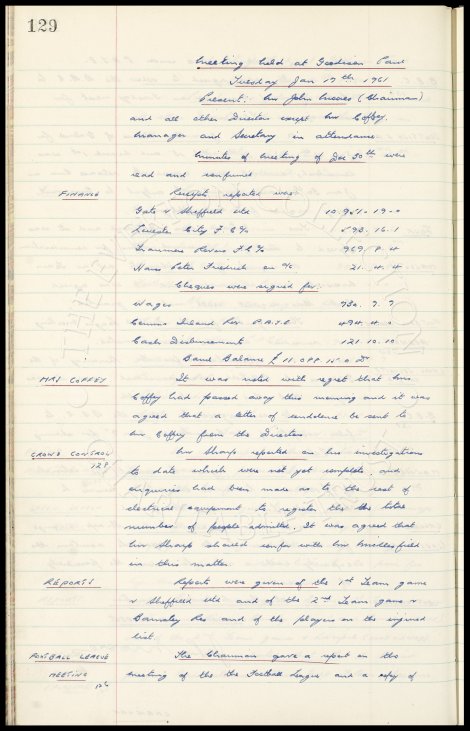 129
Meeting held at Goodison Park
Tuesday Jan 17th 1961
Present: Mr John Moores (Chairman)
and all other Directors except Mr Coffey.
Manager and Secretary in attendance.
Minutes of Meeting of Dec 30th were
read and confirmed
FINANCE Receipts reported was
Gate v Sheffield Utd
Leicester City F C %
Tranmere Rovers F C %
Hans Peter Friedrich on a/c. 21. 4. 4
Cheques were signed for.
Wages
Comms Inland Rev P.A.Y.E 494. 4. 0
Cash Disbursements 121. 10. 10
Bank Balance £
MRS COFFEY It was noted with regret that Mrs
Coffey had passed away this morning and it was
agreed that a letter of condolence be sent to
Mr Coffey from the Directors
CROWD CONTROL Mr Sharp reported on his investigations
128 to date which were not yet complete, and
enquiries had been made as to the cost of
electrical equipment to register the total
number of people admitted. It was agreed that
Mr Sharp should confer with Mr Micklesfield
in this matter
REPORTS Reports were given of the 1st Team game
v Sheffield Utd and of the 2nd Team game v
Barnsley Res and of the players on the injured
list.
FOOTBALL LEAGUE The Chairman gave a report on the
MEETING meeting of the the Football League and a copy of
126